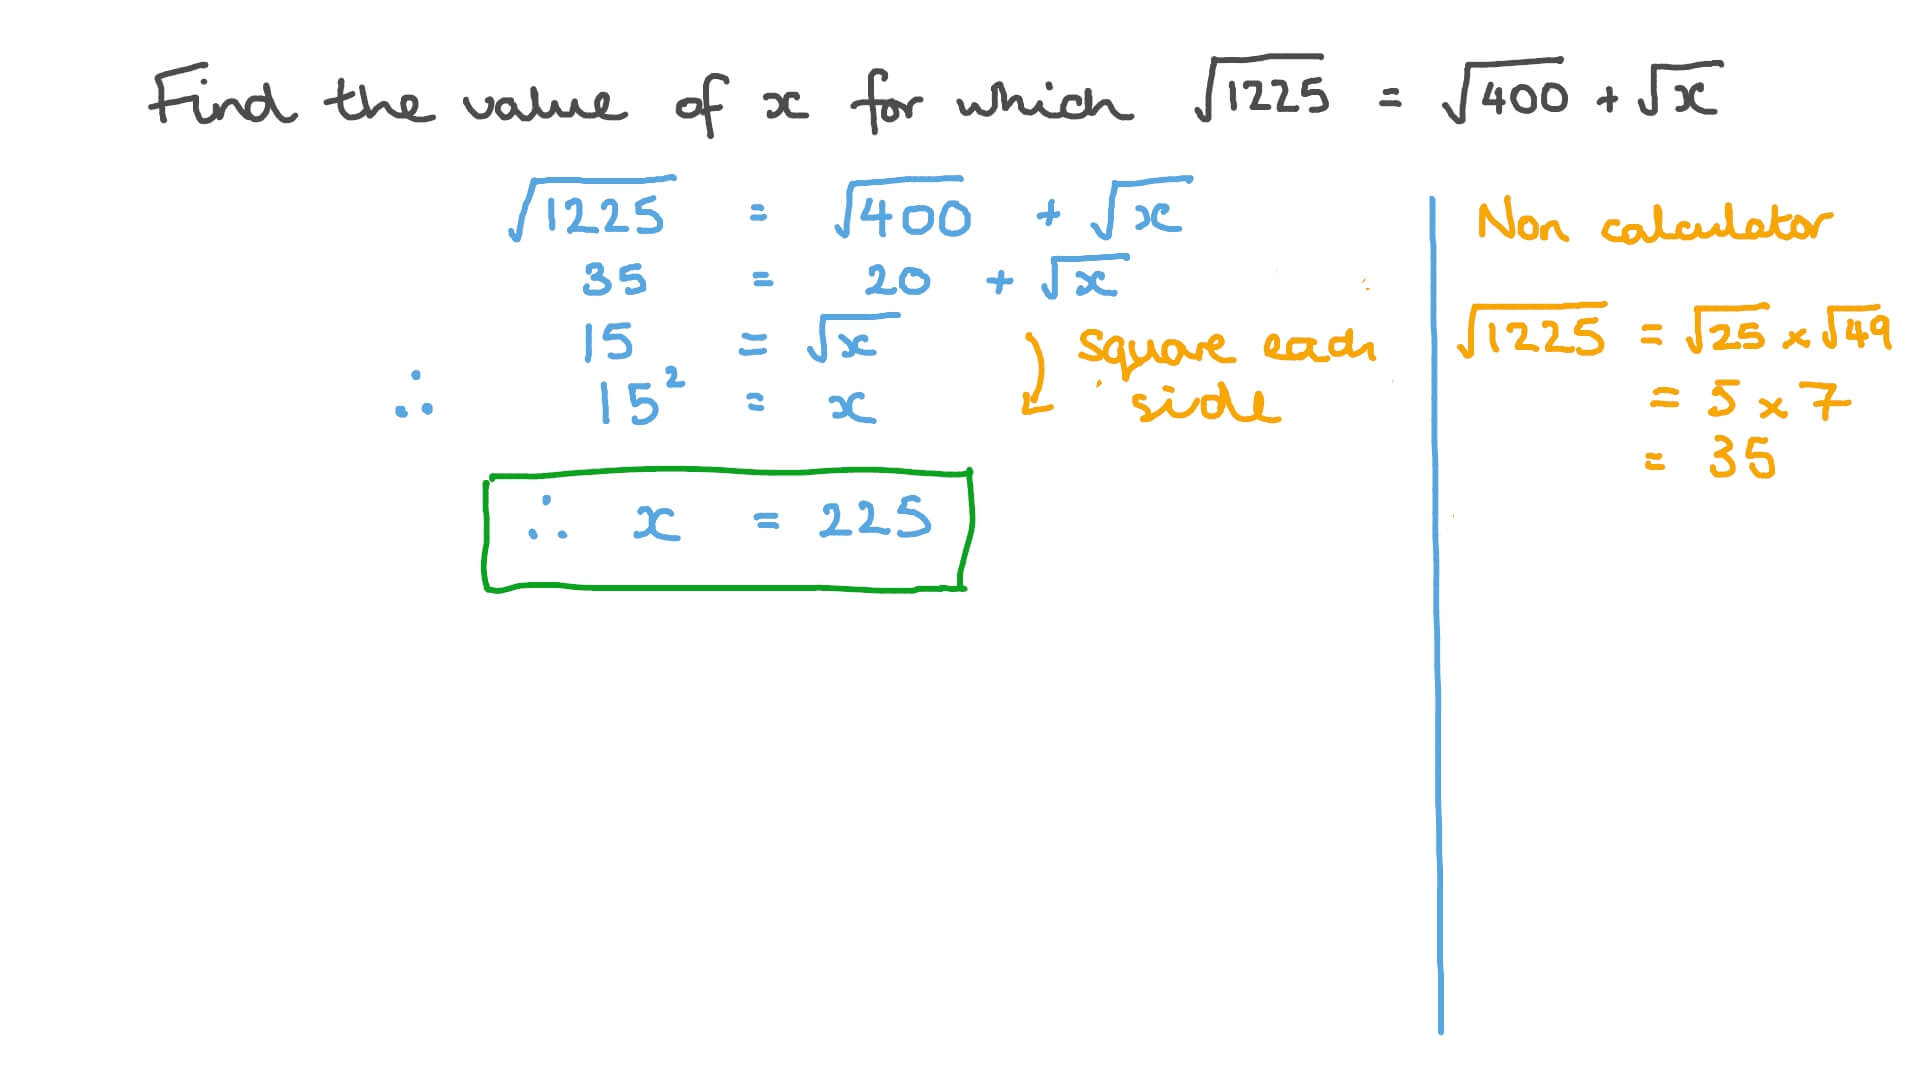 Find the value of x for which √1225 = √400 + √x
√1225 = √400 + √x
35 = 20 + √x
15 = √x
∴ 15² = x
square each
side
∴ x = 225
Non calculator
√1225 = √25 × √49
= 5 × 7
= 35